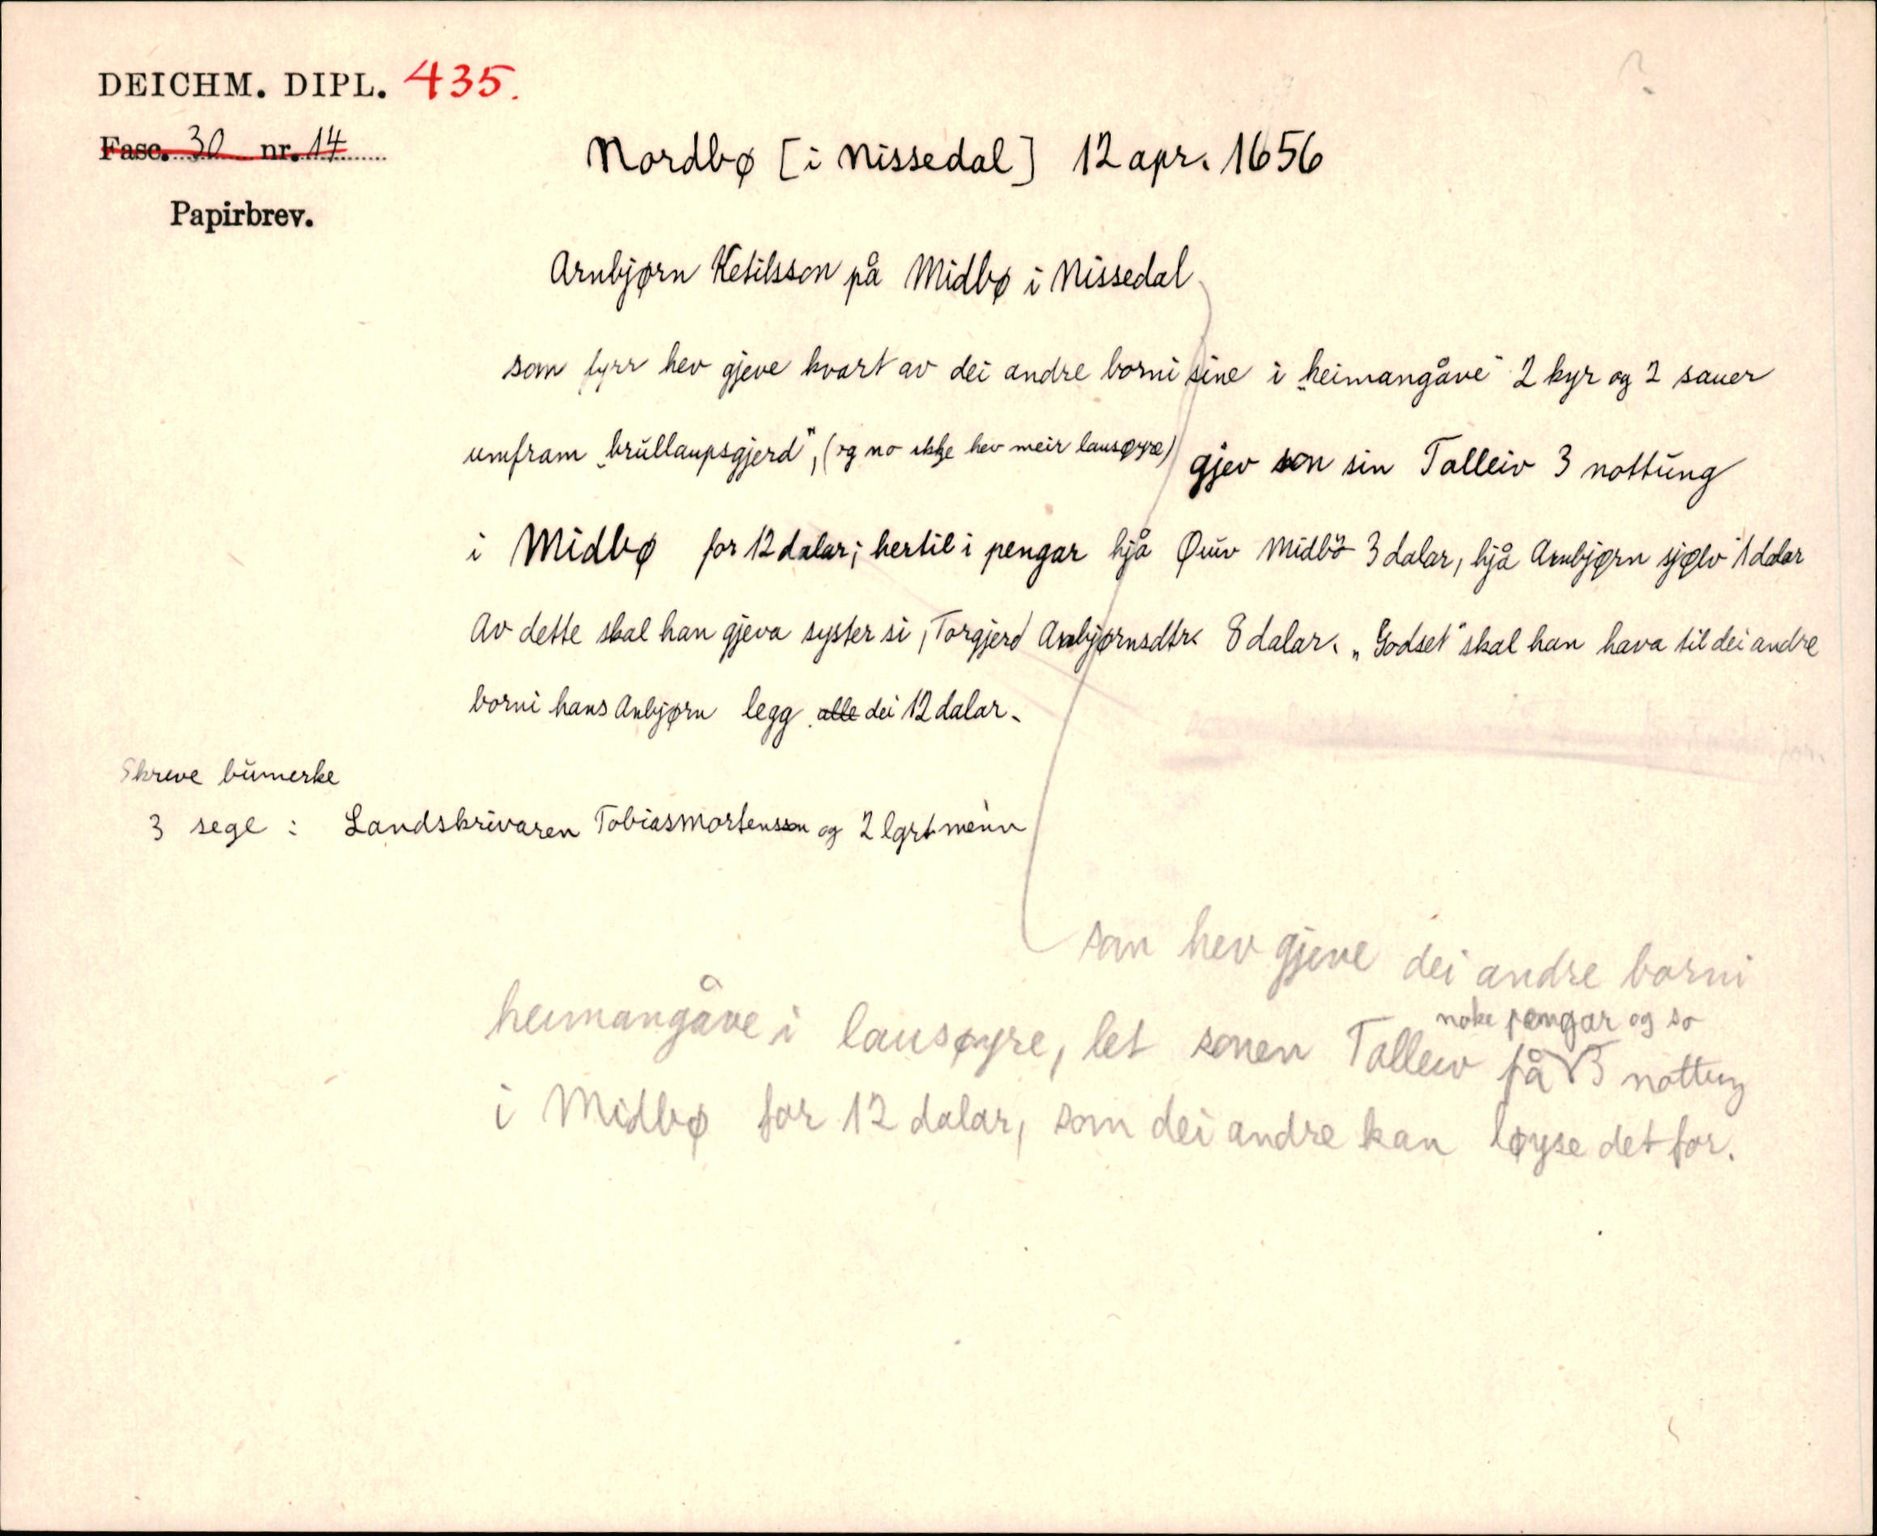 DEICHM. DIPL. 435.
Fasc. 30 nr. 14
Papirbrev.
Nordbø [i Nissedal] 12 apr. 1656
Arnbjørn Ketilsson på Midbø i Nissedal
som fyrr hev gjeve kvart av dei andre borni sine i „heimangåve" 2 kyr og 2 sauer
umfram „brullaupsgjerd", (og no ikkje hev meir lausøyre) gjev son sin Talleiv 3 nottung
i Midbø for 12 dalar; hertil i pengar hjå Midbö 3 dalar, hjå Arnbjørn sjølv 1 dalar
Av dette skal han gjeva syster si, Torgjerd Arnbjørnsdtr. 8 dalar. „Godset" skal han hava til dei andre
borni hans Anbjørn legg alle dei 12 dalar.
Skreve bumerke
3 segl : Landskrivaren Tobias Mortensson og 2 lgrtmenn
som hev gjeve dei andre borni
heimangåve i lausøyre, let sonen Talleiv få noke pengar og so 3 nottung
i Midbø for 12 dalar, som dei andre kan løyse det for.